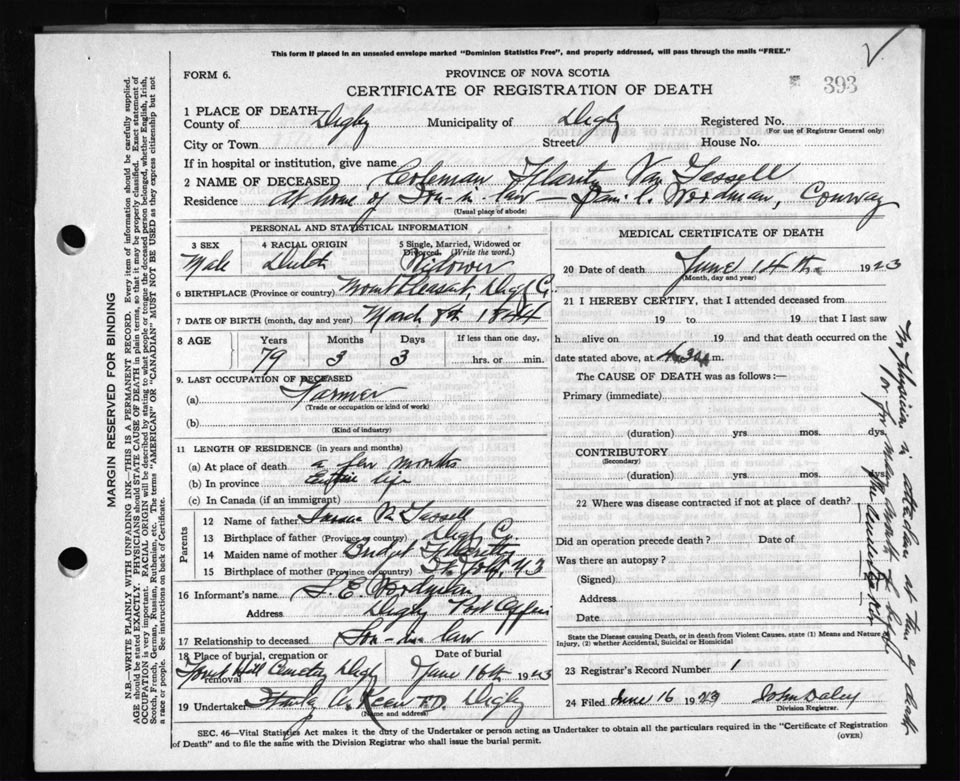 This form if placed in an unsealed envelope marked "Dominion Statistics Free", and properly addressed, will pass through the mails "FREE."
FORM 6. PROVINCE OF NOVA SCOTIA 393
CERTIFICATE OF REGISTRATION OF DEATH
1 PLACE OF DEATH—
County of Digby Municipality of Digby Registered No.
(For use of Registrar General only)
City or Town Street House No.
If in hospital or institution, give name
2 NAME OF DECEASED Coleman Van Tassell
Residence At home of Son-in-law — Woodman, Conway
(Usual place of abode)
PERSONAL AND STATISTICAL INFORMATION
3 SEX 4 RACIAL ORIGIN 5 Single, Married, Widowed or Divorced. (Write the word.)
Male Dutch Widower
6 BIRTHPLACE (Province or country) Mount Pleasant, Digby Co.
7 DATE OF BIRTH (month, day and year) March 8th 1844
8 AGE Years Months Days If less than one day,
79 3 3 hrs. or min.
9. LAST OCCUPATION OF DECEASED
(a) Farmer
(Trade or occupation or kind of work)
(b)
(Kind of industry)
11 LENGTH OF RESIDENCE (in years and months)
(a) At place of death a few months
(b) In province entire life
(c) In Canada (if an immigrant)
Parents
12 Name of father Isaac V. Tassell
13 Birthplace of father (Province or country) Digby Co.
14 Maiden name of mother Bridget
15 Birthplace of mother (Province or country)
16 Informant's name E. Woodman
Address Digby Post Office
17 Relationship to deceased Son-in-law
18 Place of burial, cremation or removal Date of burial
Forest Hill Cemetery Digby June 16th 1923
19 Undertaker Digby
(Name and address)
MEDICAL CERTIFICATE OF DEATH
20 Date of death June 14th 1923
(Month, day and year)
21 I HEREBY CERTIFY, that I attended deceased from
19 to 19 that I last saw
h alive on 19 and that death occurred on the
date stated above, at 4.30 m.
The CAUSE OF DEATH was as follows:—
Primary (immediate)
(duration) yrs. mos. dys.
CONTRIBUTORY
(Secondary)
(duration) yrs. mos. dys.
22 Where was disease contracted if not at place of death?
Did an operation precede death? Date of
Was there an autopsy?
(Signed)
Address
Date
State the Disease causing Death, or in death from Violent Causes, state (1) Means and Nature of Injury, (2) whether Accidental, Suicidal or Homicidal
23 Registrar's Record Number 1
24 Filed June 16 1923 John Daley
Division Registrar.
No Physician in attendance at time of death
or for many months before
SEC. 46—Vital Statistics Act makes it the duty of the Undertaker or person acting as Undertaker to obtain all the particulars required in the "Certificate of Registration
of Death" and to file the same with the Division Registrar who shall issue the burial permit. (OVER)
MARGIN RESERVED FOR BINDING
N.B.—WRITE PLAINLY WITH UNFADING INK—THIS IS A PERMANENT RECORD. Every item of information should be carefully supplied.
AGE should be stated EXACTLY. PHYSICIANS should STATE CAUSE OF DEATH in plain terms, so that it may be properly classified. Exact statement of
OCCUPATION is very important. RACIAL ORIGIN will be described by stating to what people or tongue the deceased person belonged, whether English, Irish,
Scotch, French, German, Russian, Ruthenian, etc. The terms "AMERICAN" OR "CANADIAN" MUST NOT BE USED as they express citizenship but not
a race or people. See instructions on back of Certificate.